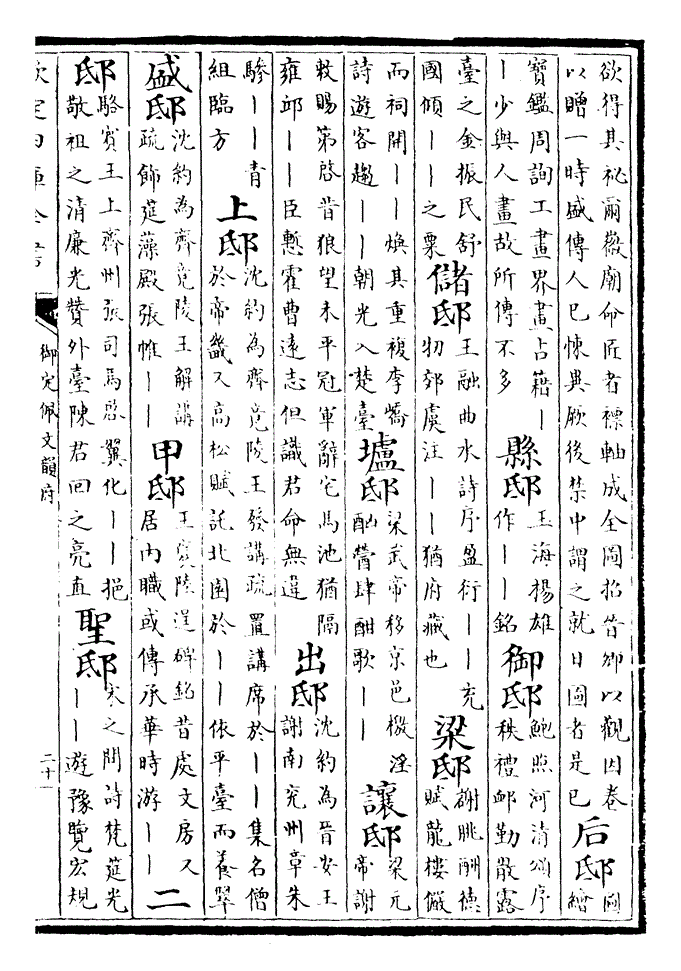 欲得其祕爾徽廟命匠者褾軸成全圖招告卿以觀因卷
以贈一時盛傳人已悚異厥後禁中謂之就日圖者是已
后邸
圖
繪
寶鑑周詢工畫界畫占籍丨
丨少與人畫故所傳不多
縣邸
玉海楊雄
作丨丨銘
御邸
鮑照河清頌序
秩禮郵勤散露
臺之金振民舒
國傾丨丨之粟
儲邸
王融曲水詩序盈衍丨丨充
物郊虞注丨丨猶府藏也
梁邸
謝朓酬德
賦龍樓儼
而祠開丨丨煥其重複李嶠
詩遊客趨丨丨朝光入楚臺
壚邸
梁武帝移京邑檄淫
酗肆酣歌丨丨
讓邸
梁元
帝謝
敕賜第啓昔狼望未平冠軍辭宅馬池猶隔
雍邱丨丨臣慙霍曹遠志但識君命無違
出邸
沈約為晉安王
謝南兖州章朱
驂丨丨青
組臨方
上邸
沈約為齊竟陵王發講疏置講席於丨丨集名僧
於帝畿又高松賦託北園於丨丨依平臺而養翠
盛邸
沈約為齊竟陵王解講
疏飾筵藻殿張帷丨丨
甲邸
王褒陸逞碑銘昔處文房又
居内職或傳承華時游丨丨
二
邸
駱賓王上齊州張司馬啓翼化丨丨挹
敬祖之清廉光贊外臺陳君回之亮直
聖邸
宋之問詩梵筵光
丨丨遊豫覽宏規
欽定四庫全書
御定佩文韻府
二十一